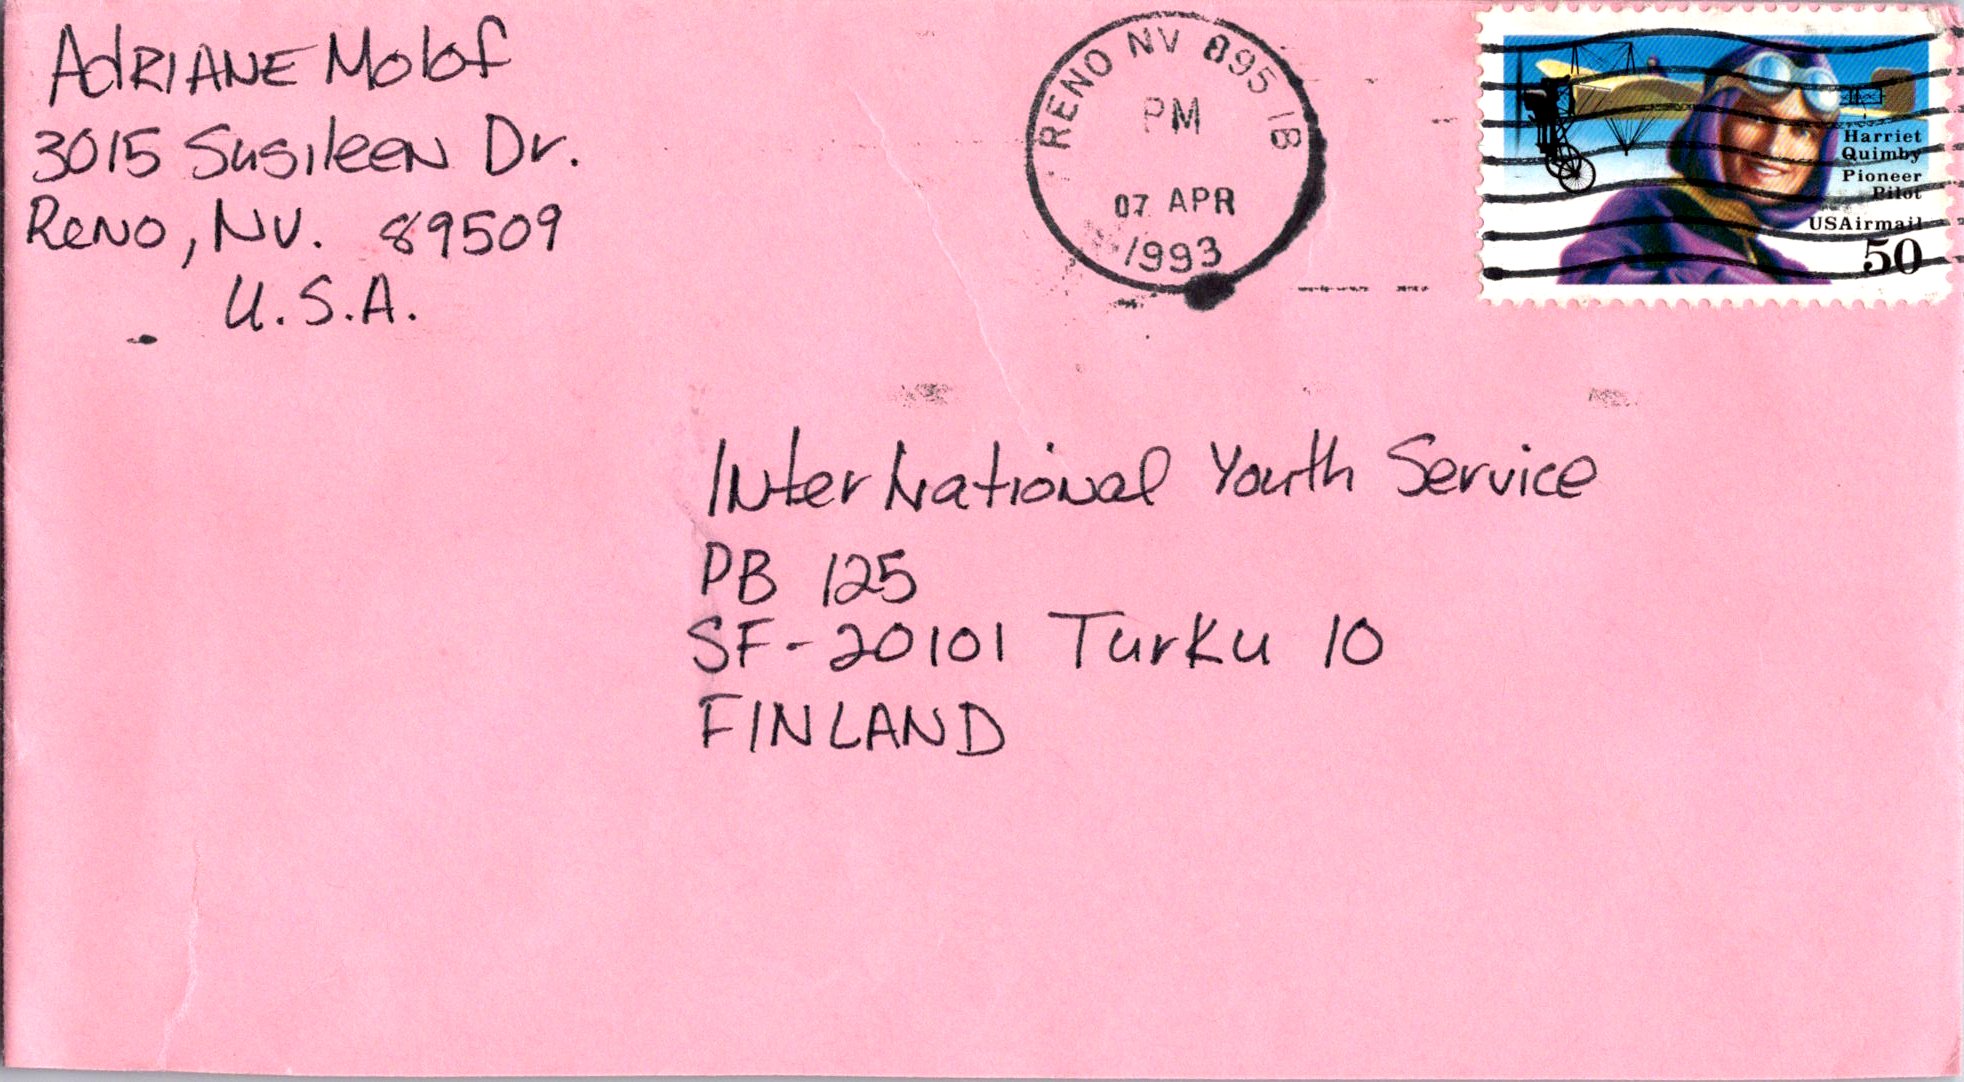 AdRIANE Molof
3015 Susileen Dr.
Reno, NV. 89509
U.S.A.
RENO NV 895 1B
PM
07 APR
1993
Harriet
Quimby
Pioneer
Pilot
USAirmail
50
InterNational Youth Service
PB 125
SF-20101 Turku 10
FINLAND